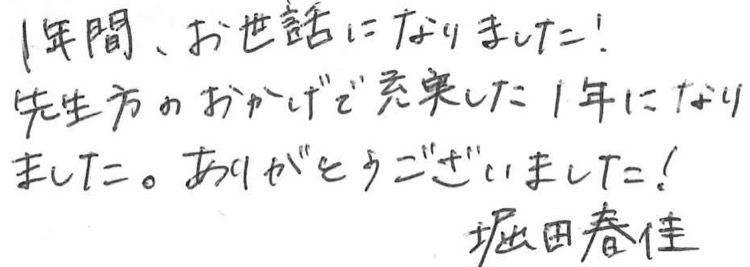 1年間、お世話になりました!
先生方のおかげで充実した1年になり
ました。ありがとうございました!
堀田春佳